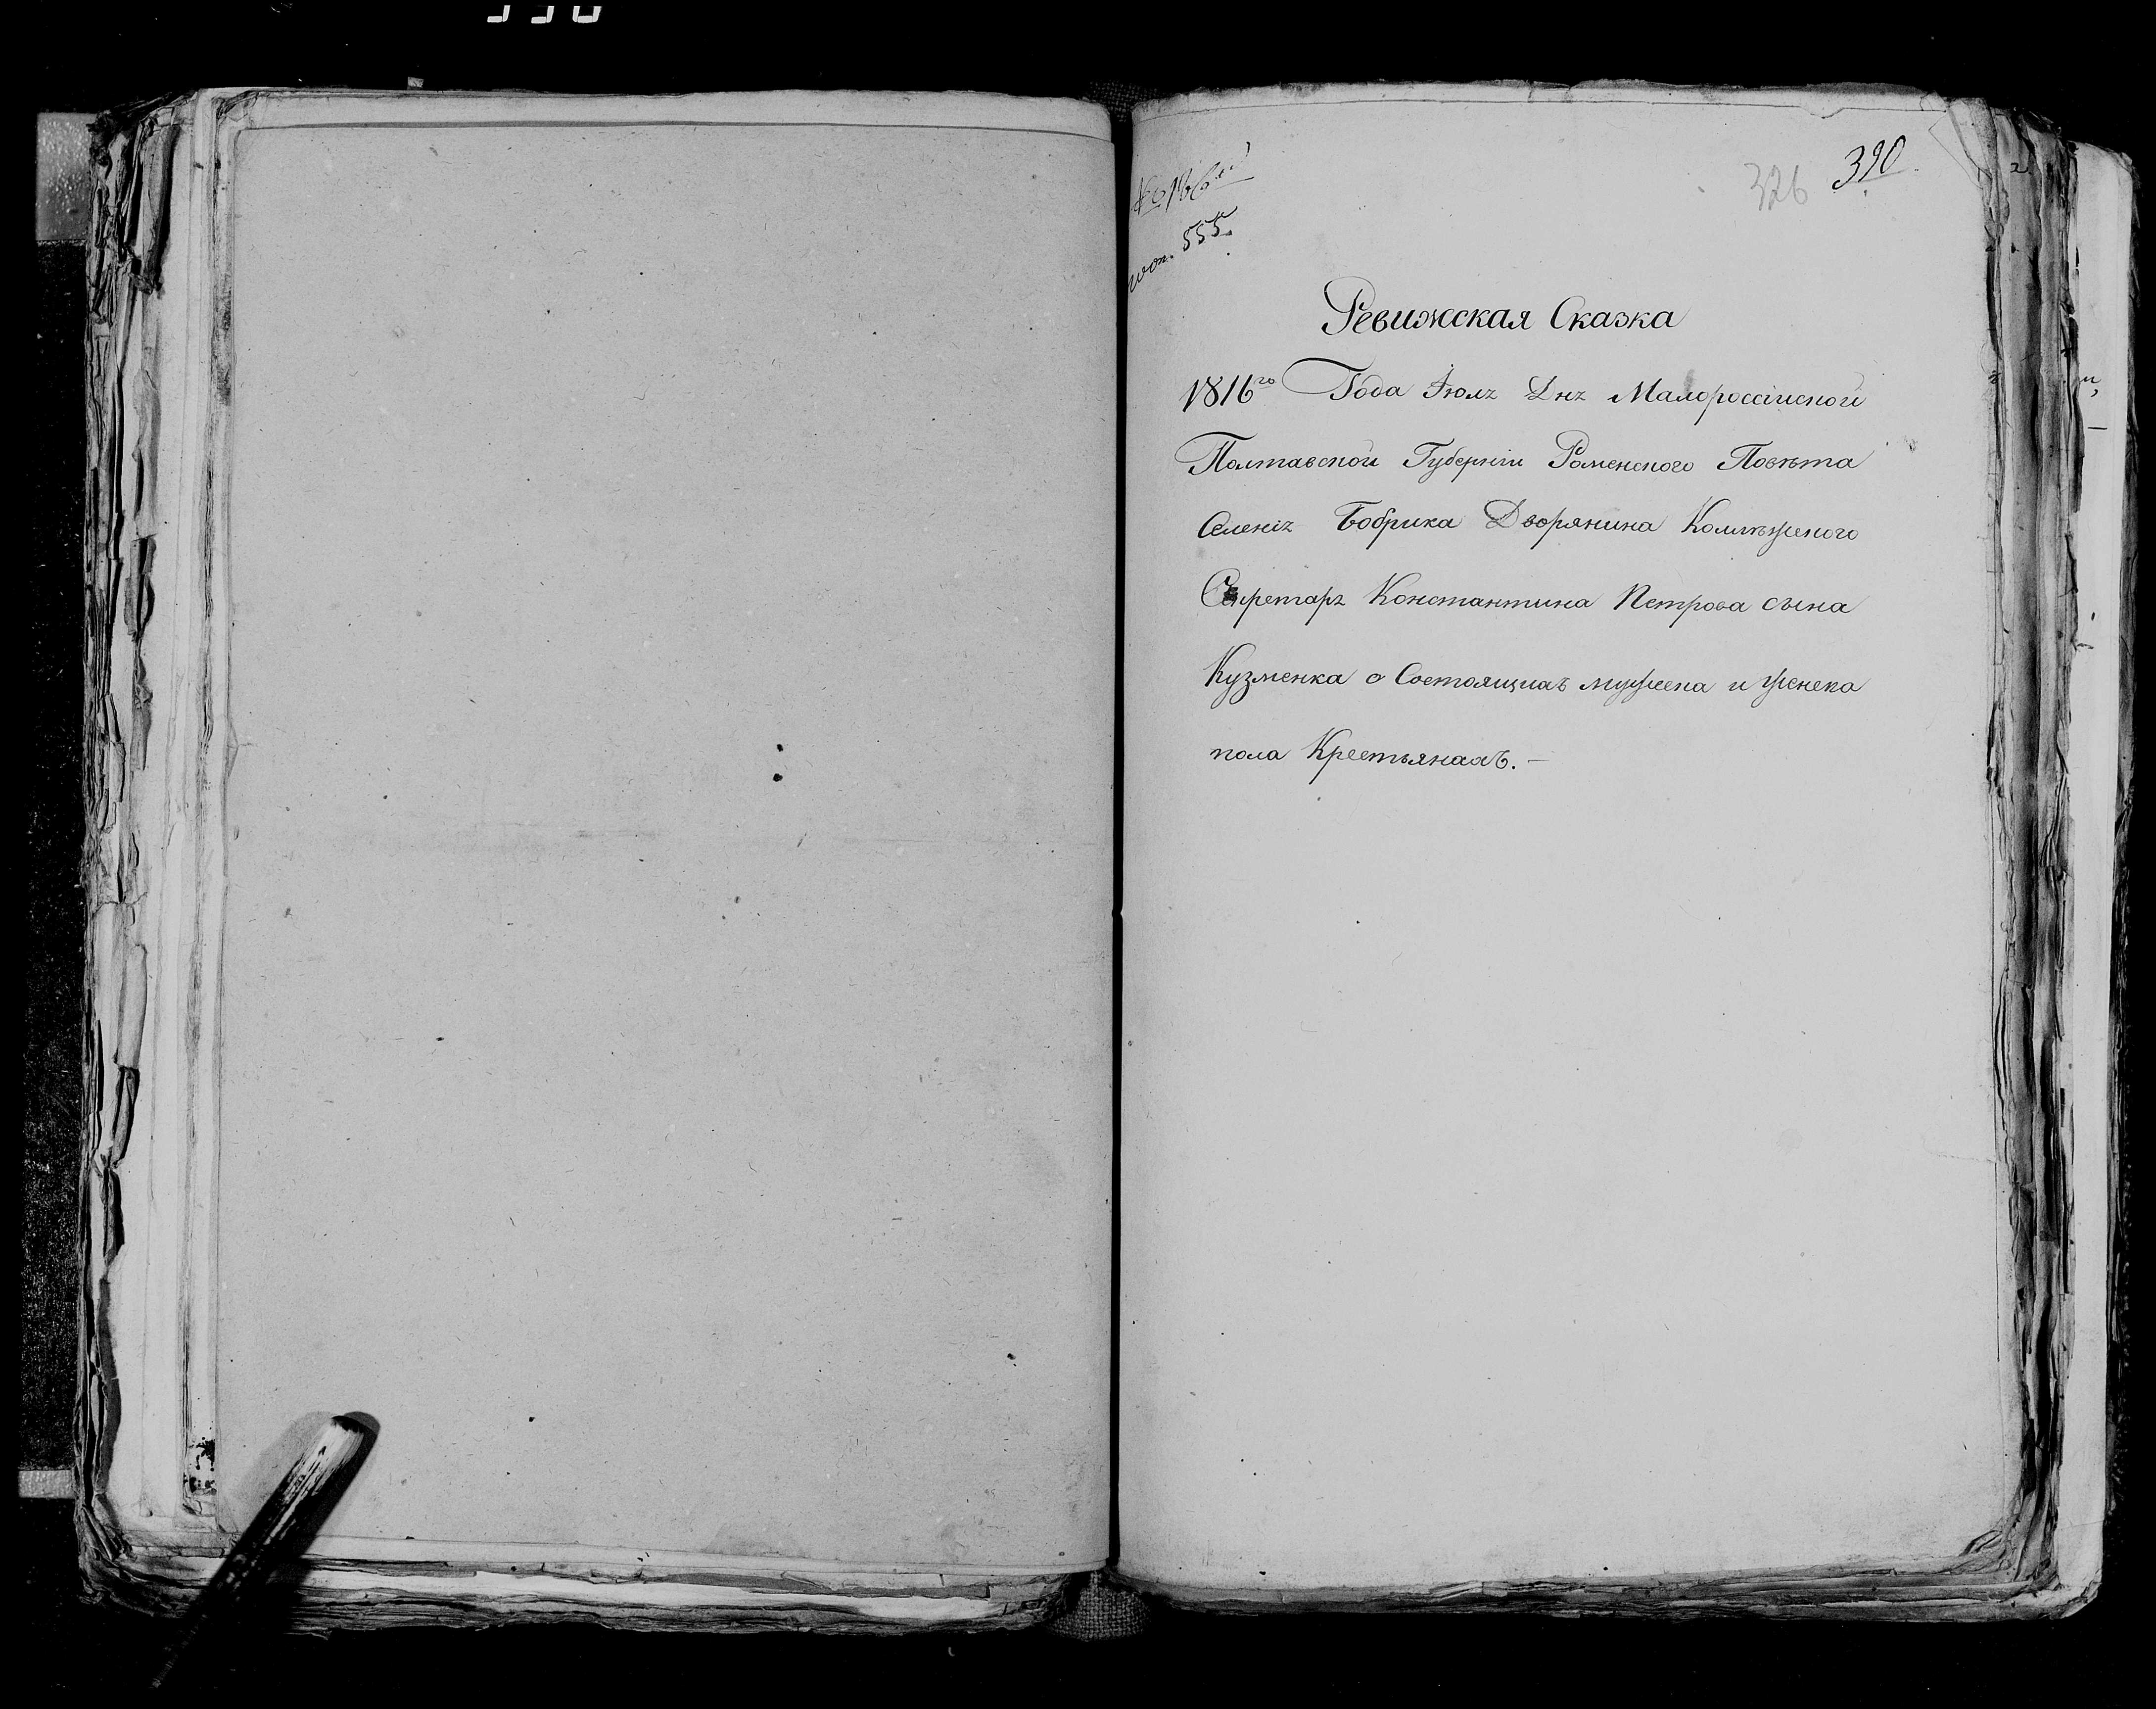 № 186й
326 390
555.
Ревижская Сказка
1816го Года Іюля Дня Малороссійской
Полтавской Губерніи Роменского Повѣта
Селенія Бобрика Дворянина Коллѣжского
Секретаря Константина Петрова сына
Кузменка о Состоящихъ мужеска и женска
пола Крестьянахъ.—